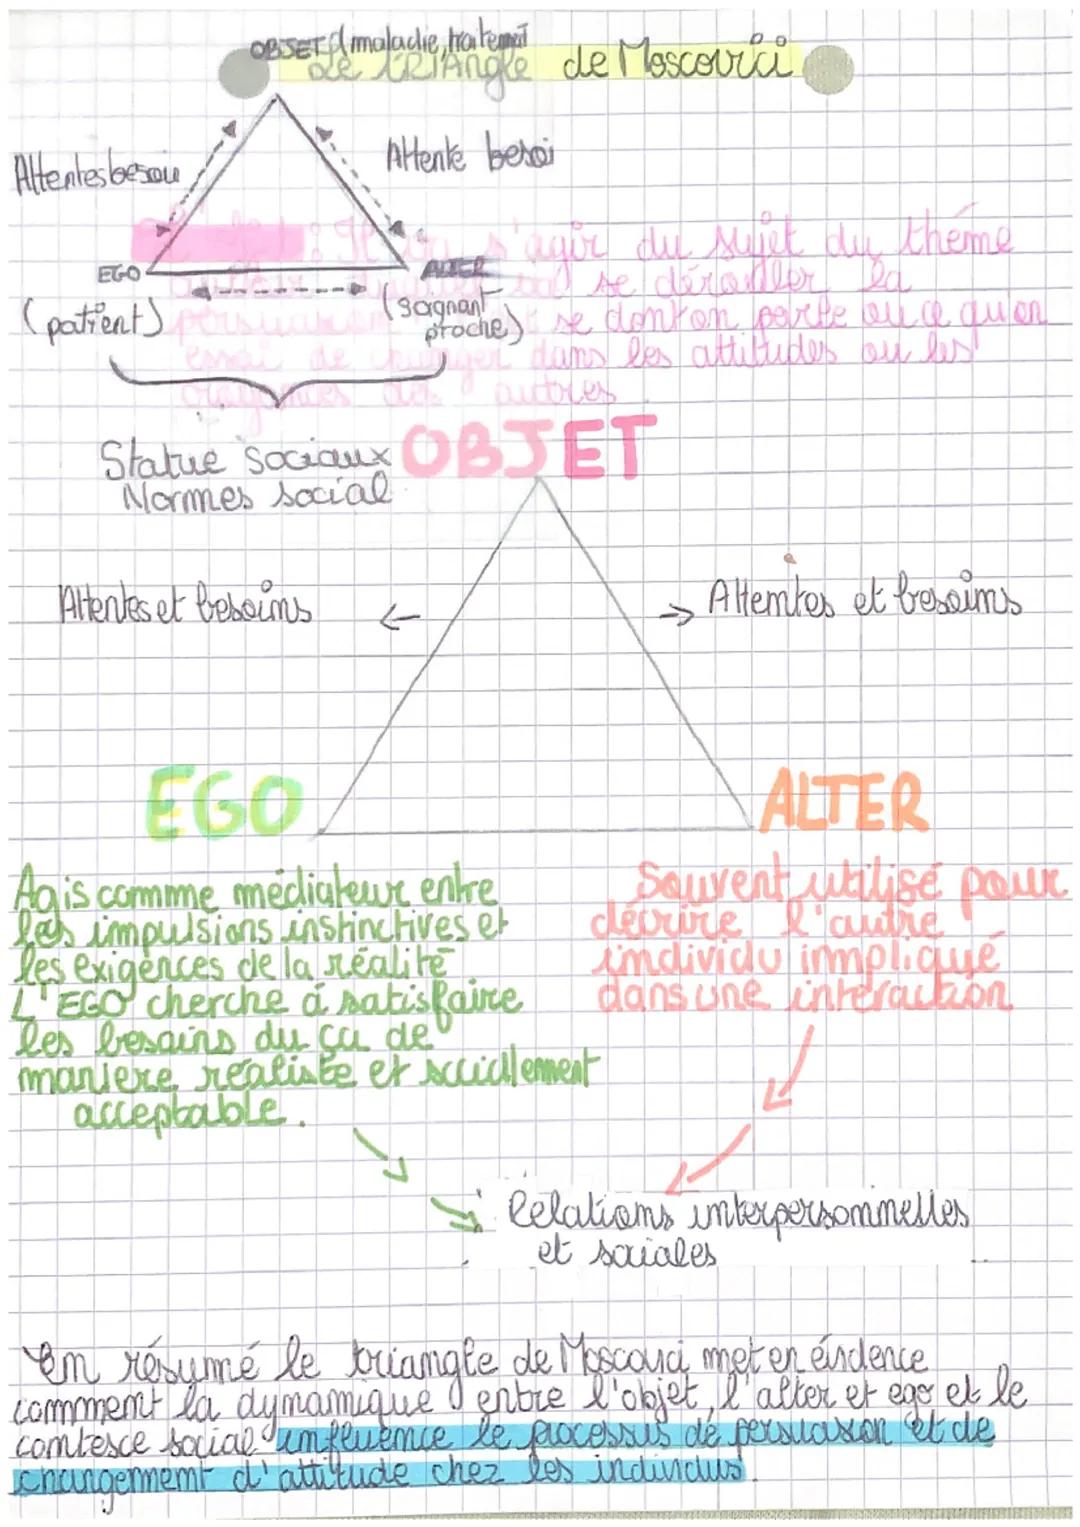 OBJET maladie, traitement
Le TRIANGLE de Moscovici
Attentes besoin
Attente besoi
: Il s'agir du sujet du thème
EGO
ALTER
se dérouler la
(patient)
(soignant
proche)
persuasion se dont on parle ou ce qu'on
essai de changer dans les attitudes ou les
croyances des autres
Statue sociaux
Normes social
OBJET
Attentes et besoins
←
→ Attemtes et besoims
EGO
ALTER
Agis commme médiateur entre
les impulsions instinctives et
les exigences de la réalité
L'EGO cherche à satisfaire
les besoins du ça de
maniere réaliste et sociallement
acceptable.
Souvent utilisé pour
décrire l'autre
individu impliqué
dans une interaction
Relations interpersonnelles
et sociales
En résumé le triangle de Moscovici met en évidence
commment la dynamique entre l'objet, l'alter et ego et le
contexce social influence le processus de persuasion et de
changemment d'attitude chez les individus.